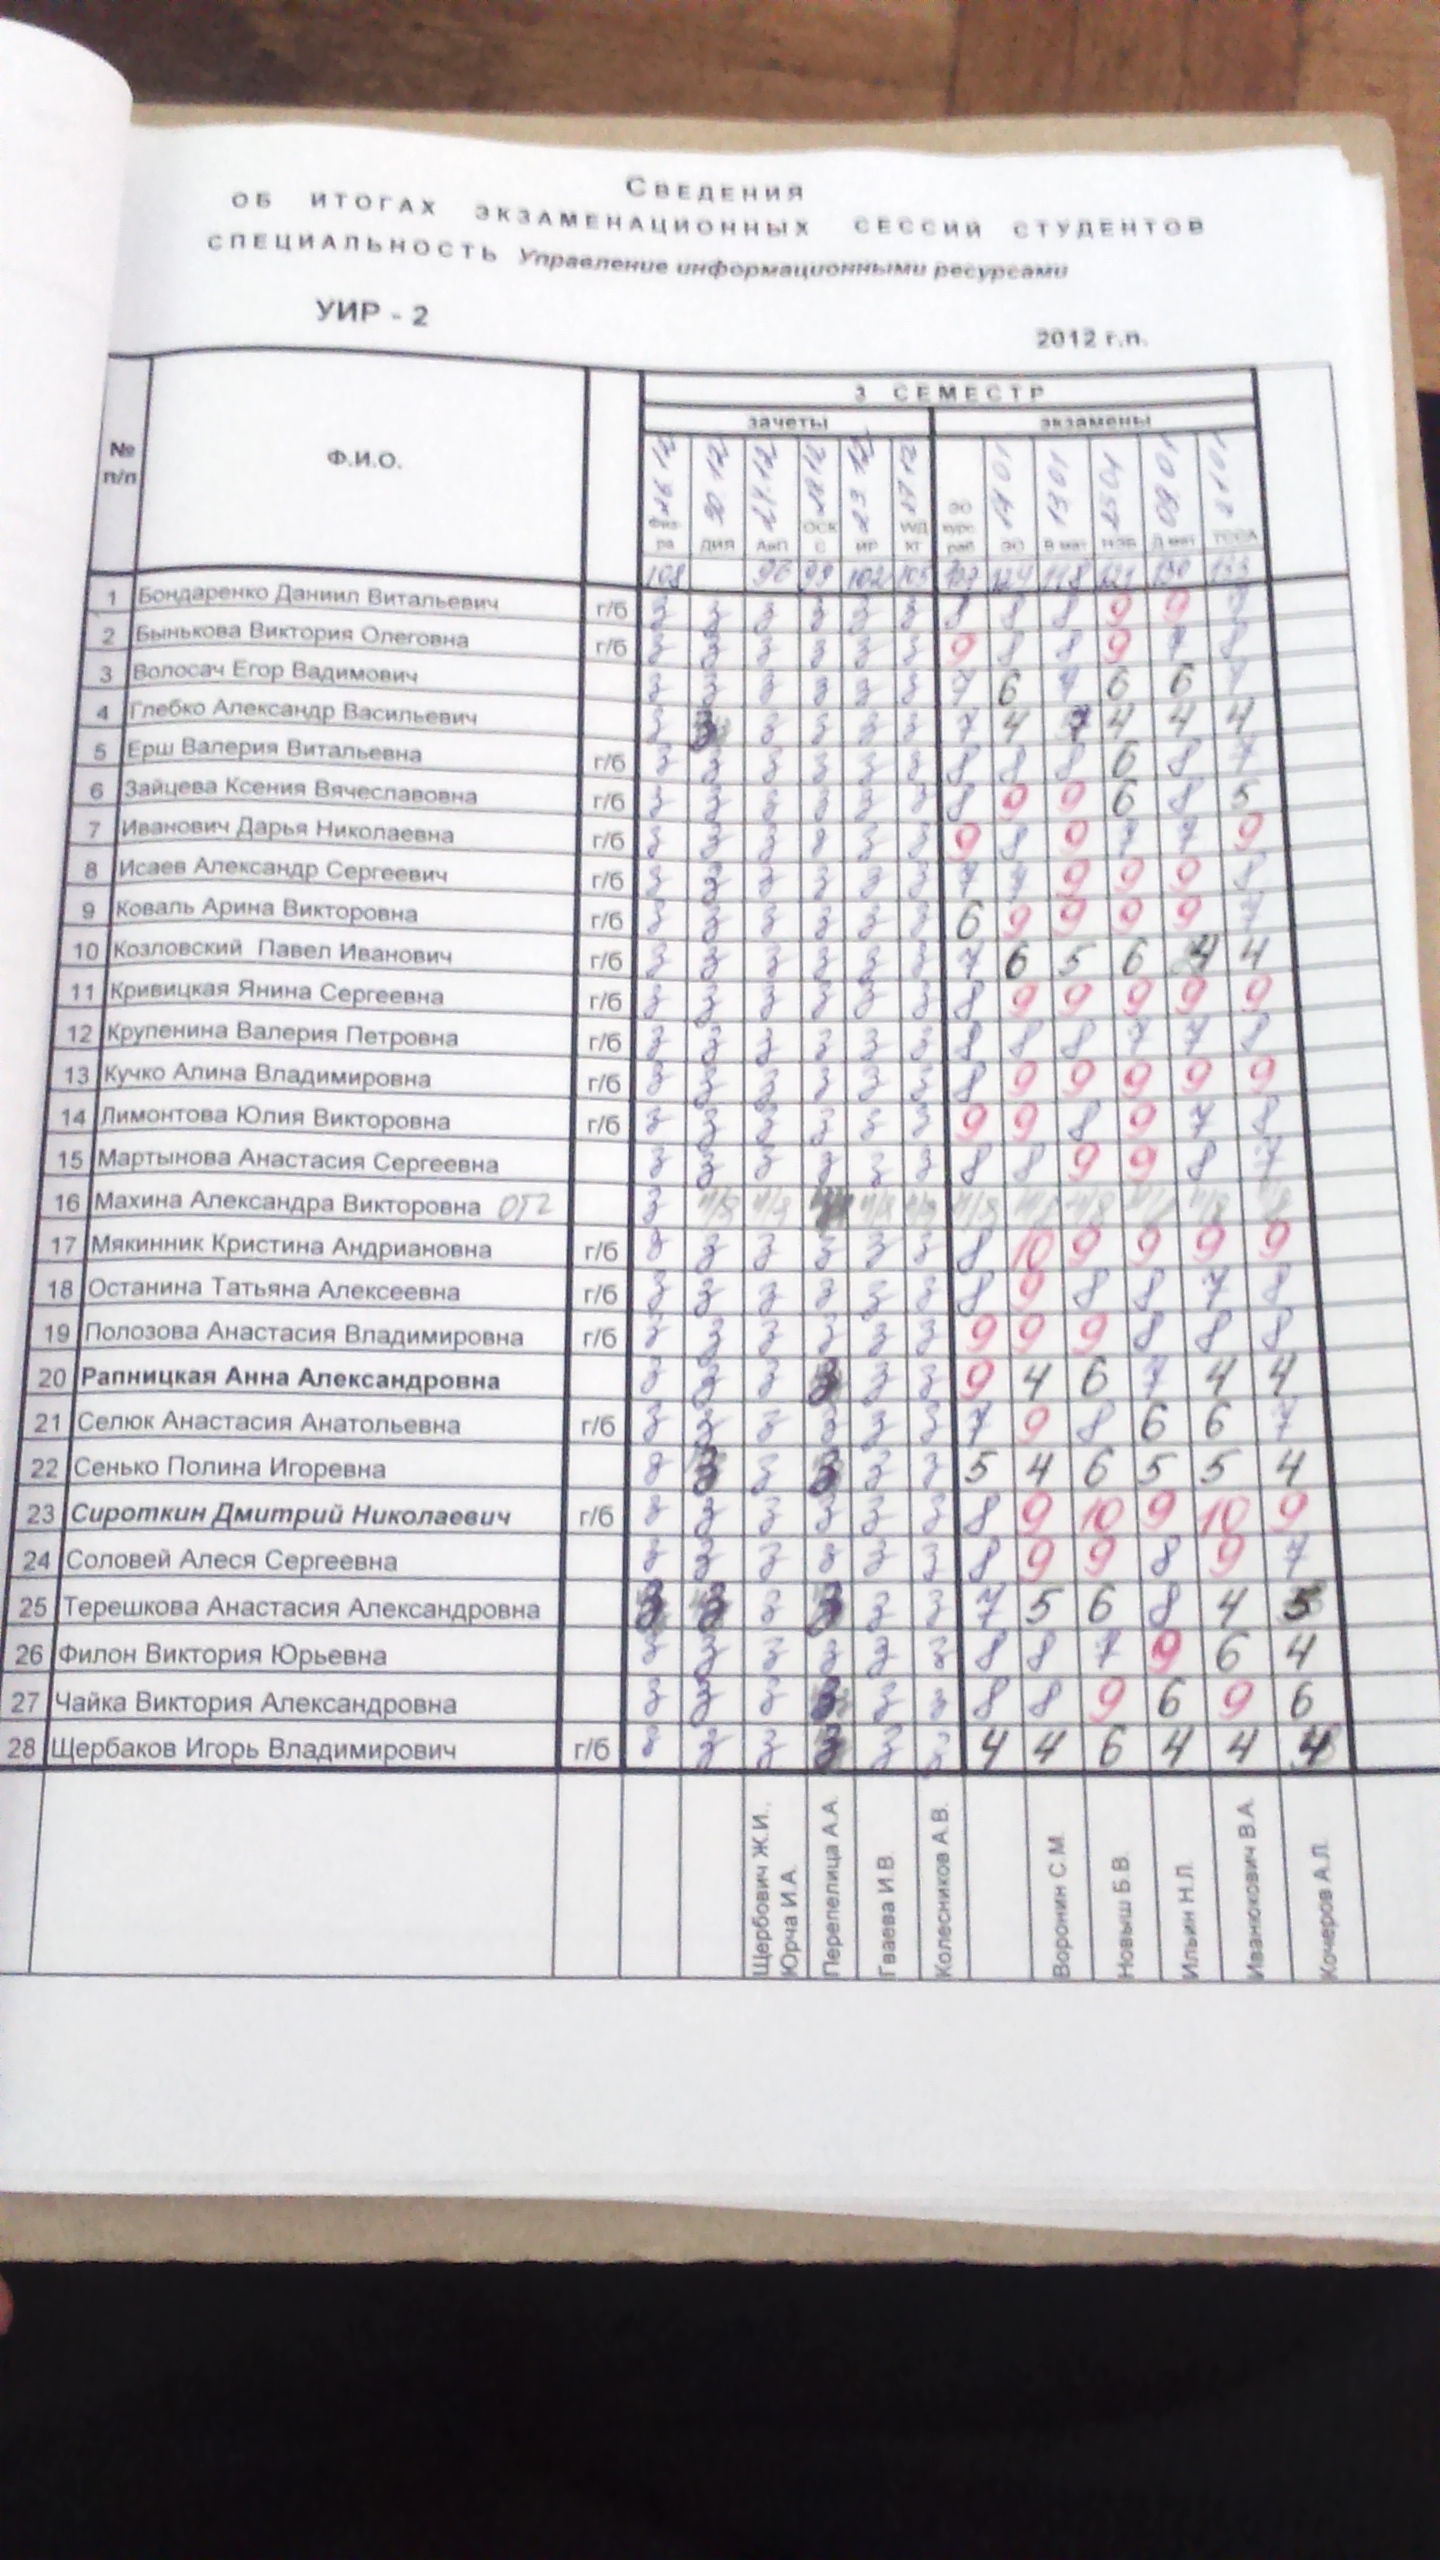 СВЕДЕНИЯ
ОБ ИТОГАХ ЭКЗАМЕНАЦИОННЫХ СЕССИЙ СТУДЕНТОВ
СПЕЦИАЛЬНОСТЬ Управление информационными ресурсами
УИР - 2
2012 г.п.
№ п/п Ф.И.О. 3 СЕМЕСТР
зачеты экзамены
Физ-ра ДИЯ АиП ОСК С ИР ЭО курс раб ЭО В мат НЭВ Д мат
108 96 99 102 105 107 124 118 121 130 133
1 Бондаренко Даниил Витальевич г/б з з з з з з 8 8 8 9 9
2 Бынькова Виктория Олеговна г/б з з з з з з 9 8 8 9 7 8
3 Волосач Егор Вадимович з з з з з з 7 6 7 6 6 7
4 Глебко Александр Васильевич з з з з з з 7 4 7 4 4 4
5 Ерш Валерия Витальевна г/б з з з з з з 8 8 8 6 8 7
6 Зайцева Ксения Вячеславовна г/б з з з з з з 8 9 9 6 8 5
7 Иванович Дарья Николаевна г/б з з з з з з 9 8 9 7 7 9
8 Исаев Александр Сергеевич г/б з з з з з з 7 7 9 9 9 8
9 Коваль Арина Викторовна г/б з з з з з з 6 9 9 9 9 7
10 Козловский Павел Иванович г/б з з з з з з 7 6 5 6 4 4
11 Кривицкая Янина Сергеевна г/б з з з з з з 8 9 9 9 9 9
12 Крупенина Валерия Петровна г/б з з з з з з 8 8 8 7 7 8
13 Кучко Алина Владимировна г/б з з з з з з 8 9 9 9 9 9
14 Лимонтова Юлия Викторовна г/б з з з з з з 9 9 8 9 7 8
15 Мартынова Анастасия Сергеевна з з з з з з 8 8 9 9 8 7
16 Махина Александра Викторовна з
17 Мякинник Кристина Андриановна г/б з з з з з з 8 10 9 9 9 9
18 Останина Татьяна Алексеевна г/б з з з з з з 8 9 8 8 7 8
19 Полозова Анастасия Владимировна г/б з з з з з з 9 9 9 8 8 8
20 Рапницкая Анна Александровна з з з з з з 9 4 6 7 4 4
21 Селюк Анастасия Анатольевна г/б з з з з з з 7 9 8 6 6 7
22 Сенько Полина Игоревна з з з з з з 5 4 6 5 5 4
23 Сироткин Дмитрий Николаевич г/б з з з з з з 8 9 10 9 10 9
24 Соловей Алеся Сергеевна з з з з з з 8 9 9 8 9 7
25 Терешкова Анастасия Александровна з з з з з з 7 5 6 8 4 5
26 Филон Виктория Юрьевна з з з з з з 8 8 7 9 6 4
27 Чайка Виктория Александровна з з з з з з 8 8 9 6 9 6
28 Щербаков Игорь Владимирович г/б з з з з з з 4 4 6 4 4 4
Щербович Ж.И.,
Юрча И.А.
Перепелица А.А.
Гваева И.В.
Колесников А.В.
Воронин С.М.
Новыш Б.В.
Ильин Н.Л.
Иванюкович В.А.
Кочеров А.Л.